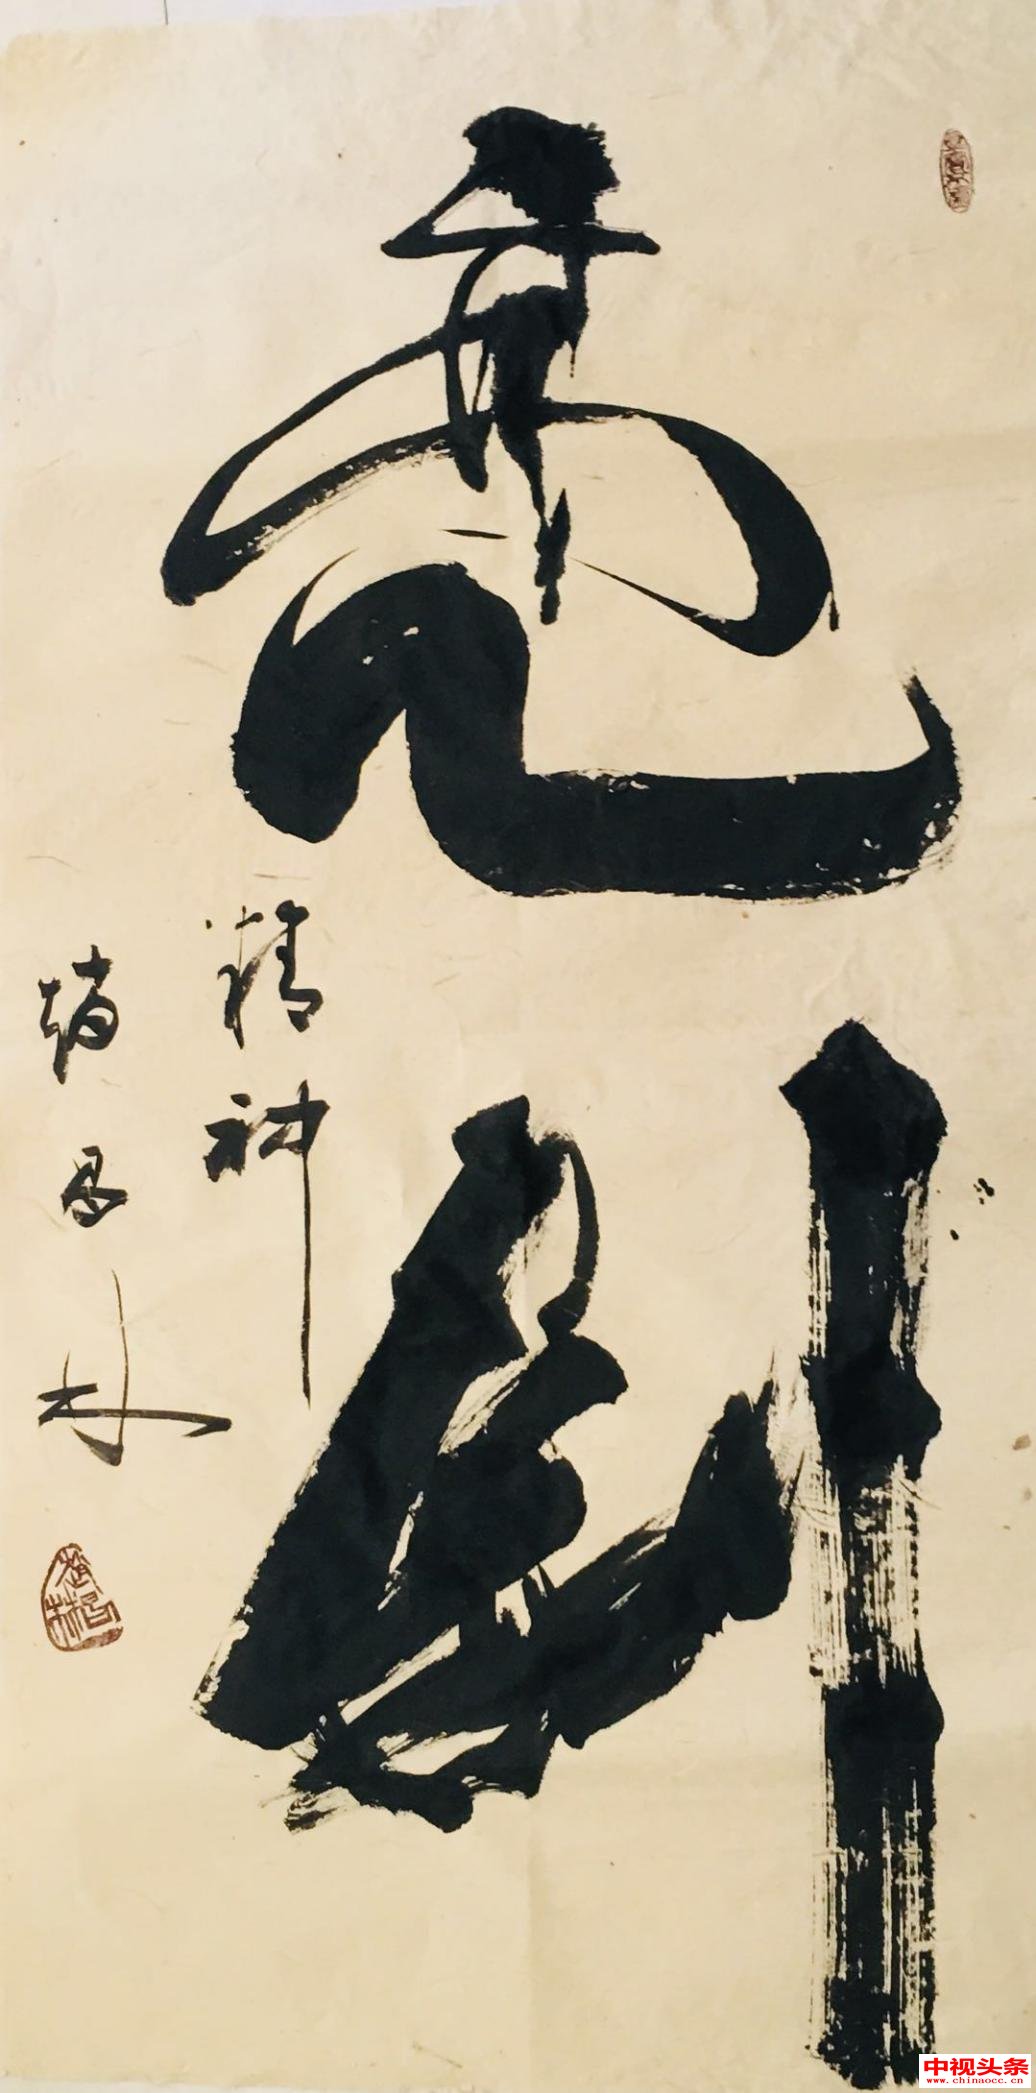 亮
劍
精神
趙昌林
中视头条
www.chinaocc.cn